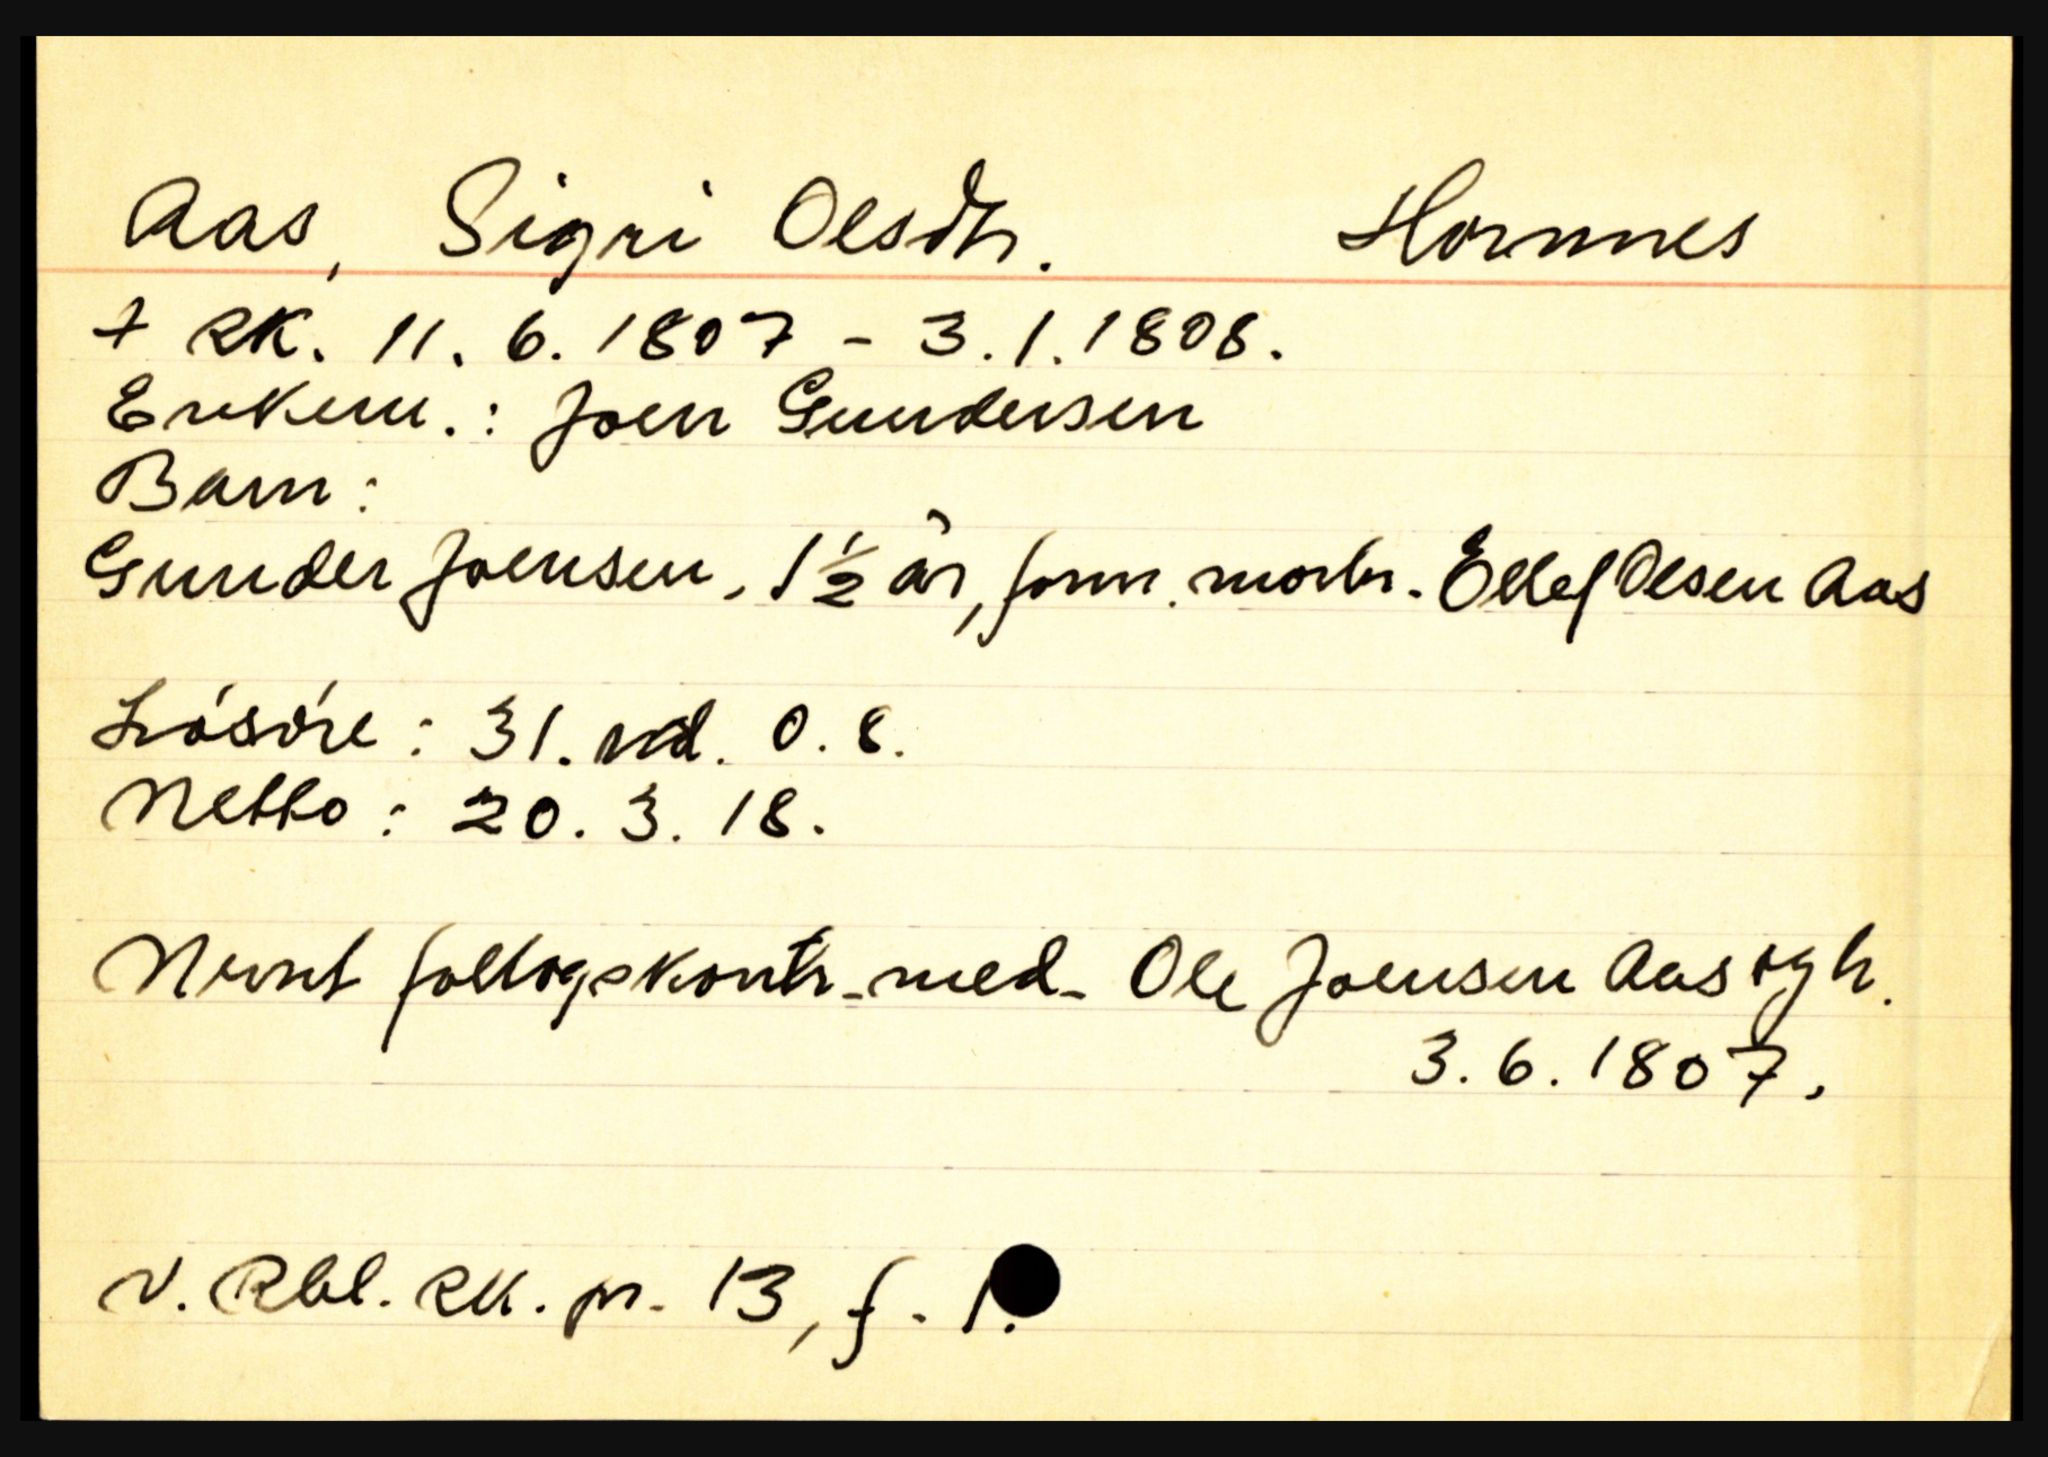 Aas, Sigri Olsdtr. Hornnes
+ RK. 11.6.1807 - 3.1.1808.
Enkem.: Joen Gundersen
Barn:
Gunder Joensen, 1½ år, form. morbr. Ellef Olsen Aas
Lösöre: 31. rd. 0. 8.
Netto: 20. 3. 18.
Nevnt følløgskontr. med Ole Joensen Aas tgl.
3.6.1807.
N. Rbl. RK. pr. 13, f. 1.